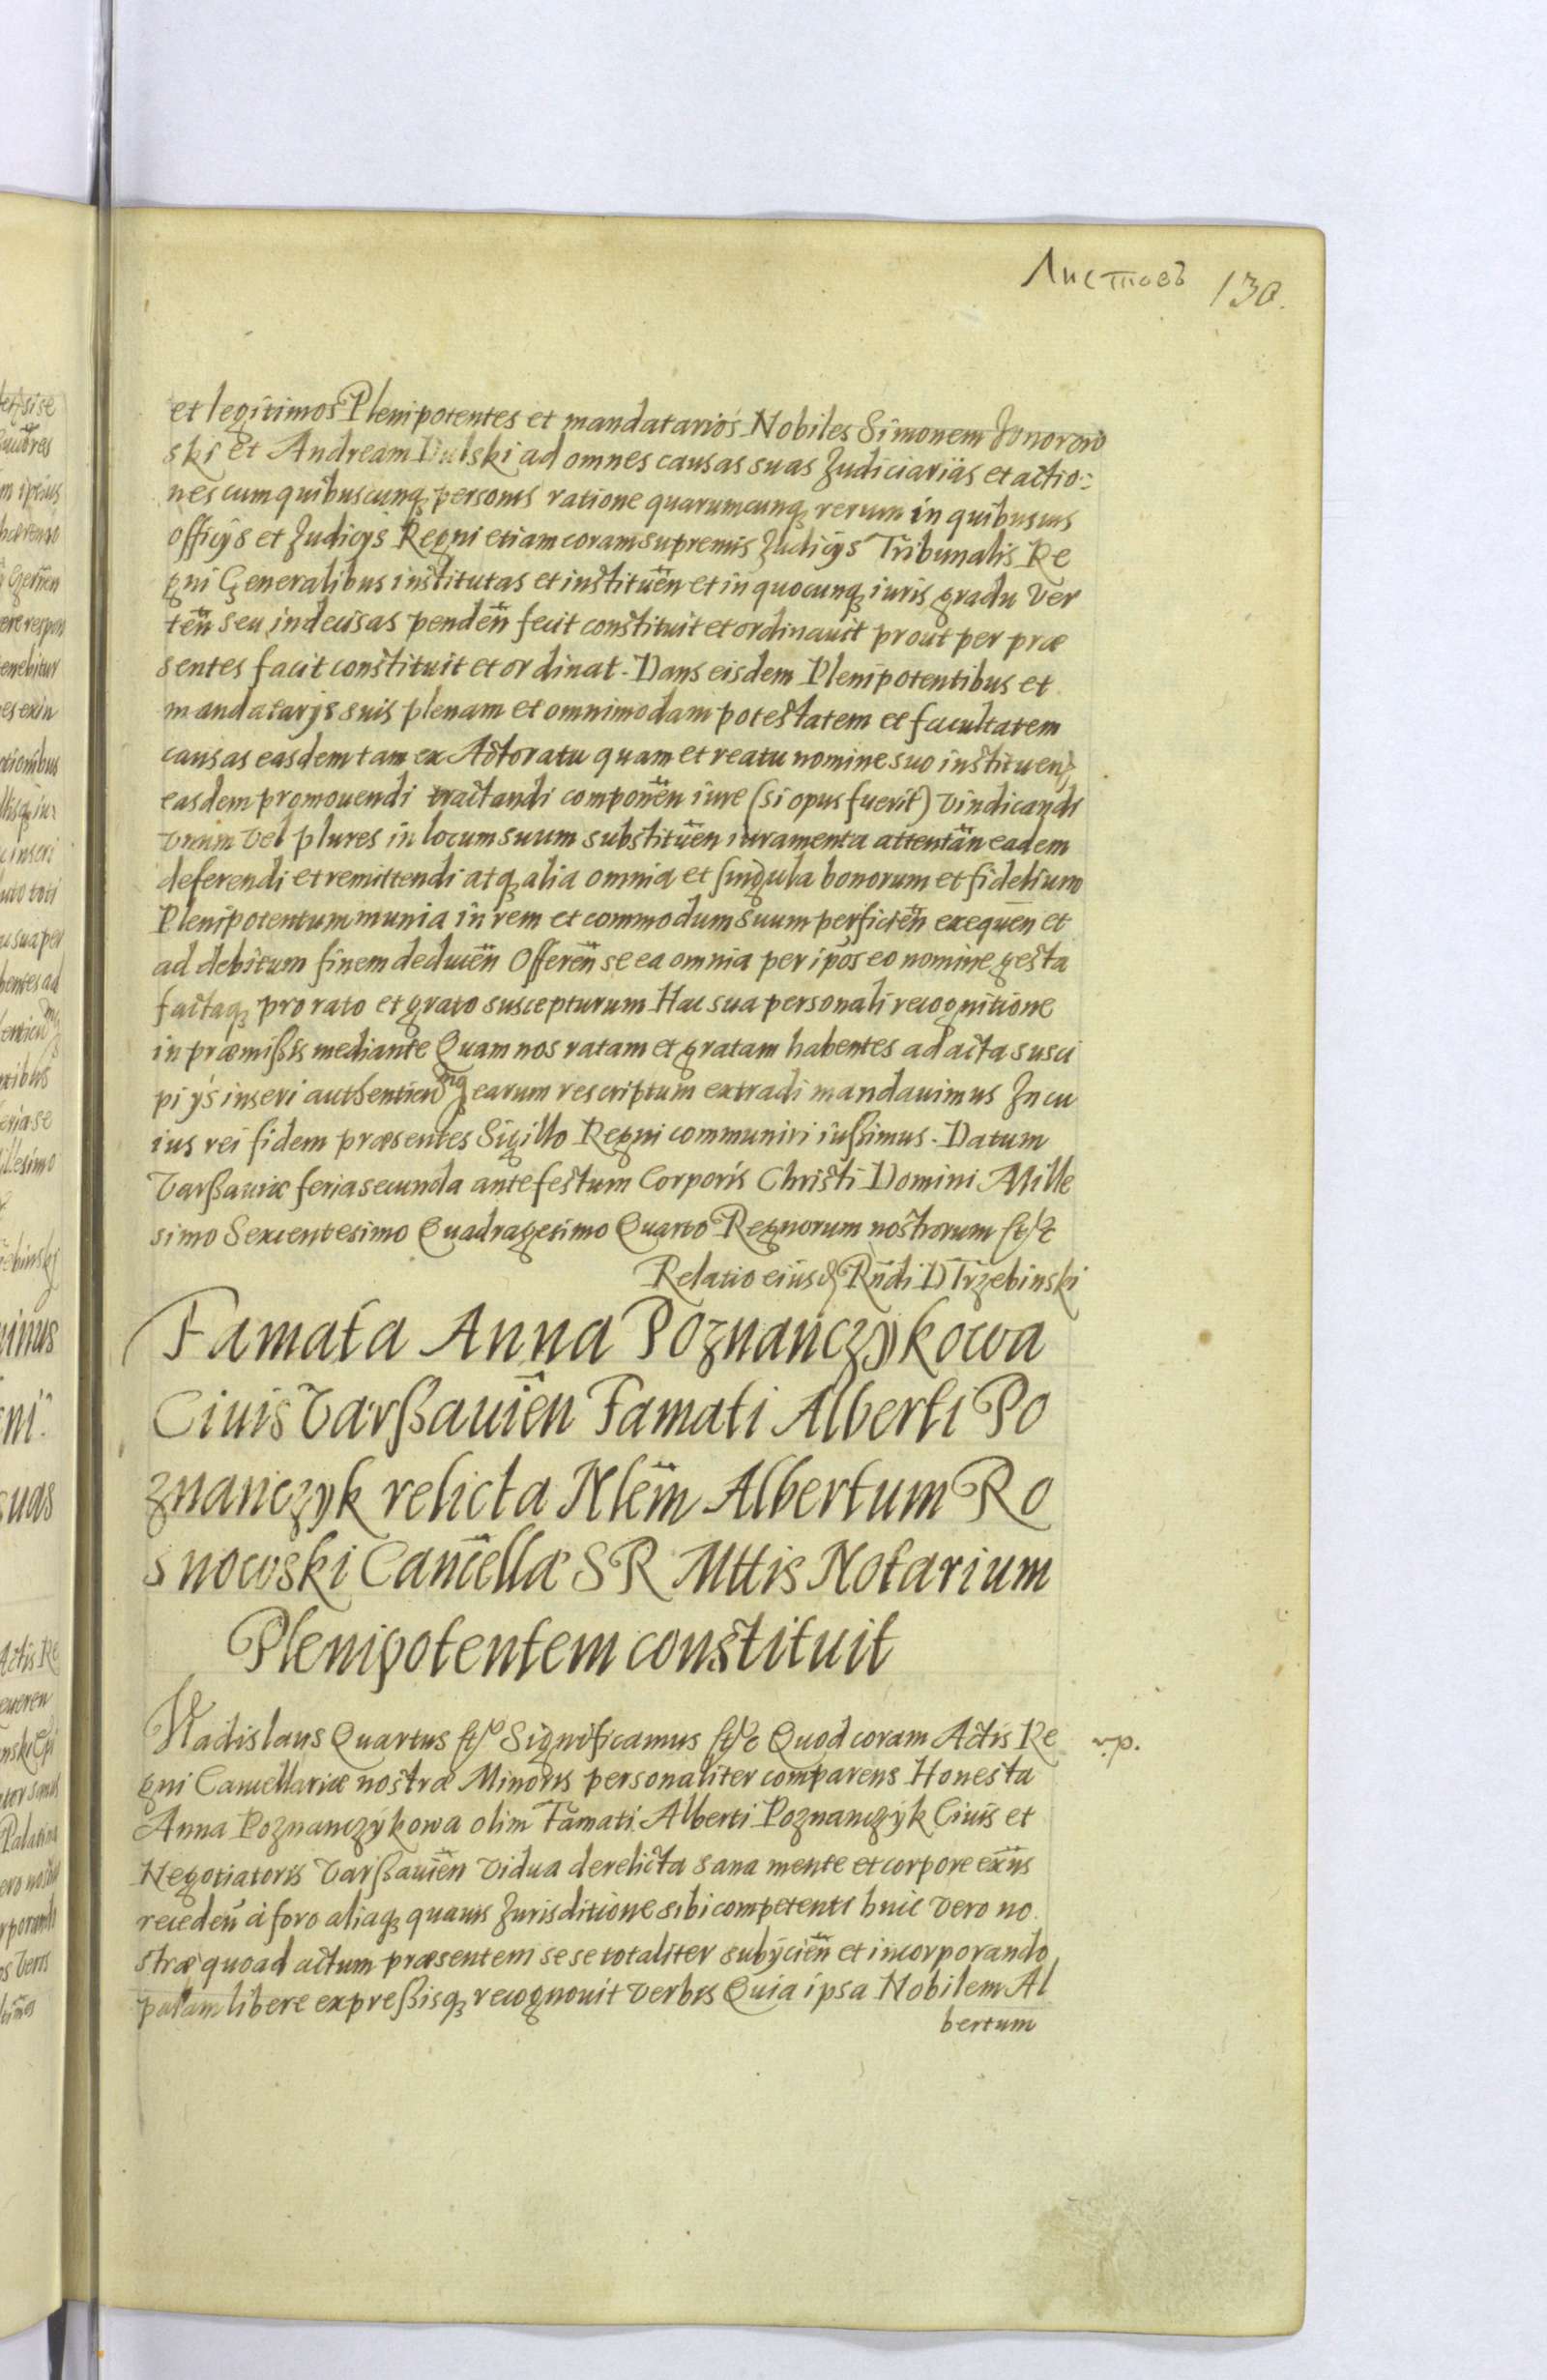 Листовъ 130.
et legitimos Plenipotentes et mandatarios Nobiles Simonem
ski et Andream Dulski ad omnes causas suas Judiciarias et actio=
nes cum quibuscunq personis ratione quarumcunq rerum in quibusuis
officijs et Judicijs Regni etiam coram supremis Judicijs Tribunalis Re
gni Generalibus institutas et instituen et in quocunq iuris gradu ver
ten seu indecisas penden fecit constituit et ordinauit prout per præ
sentes facit constituit et ordinat. Dans eisdem Plenipotentibus et
mandatarijs suis plenam et omnimodam potestatem et facultatem
causas easdem tam ex Actoratu quam et reatu nomine suo instituen
easdem promouendi tractandi componen iure (si opus fuerit) vindicandi
vnum vel plures in locum suum substituen iuramenta attentan eadem
deferendi et remittendi atq alia omnia et singula bonorum et fidelium
Plenipotentum munia in rem et commodum suum perficien exequen et
ad debitum finem deducen Offeren se ea omnia per ipos eo nomine gesta
factaq pro rato et grato suscepturum Hac sua personali recognitione
in præmißis mediante Quam nos ratam et gratam habentes ad acta susci
pi ijs inseri authenticumq earum rescriptum extradi mandauimus In cu
ius rei fidem præsentes Sigillo Regni communiri iußimus. Datum
Varßauiæ feria secunda ante festum Corporis Christi Domini Mille
simo Sexcentesimo Quadragesimo Quarto Regnorum nostrorum etc
Relatio eiusd Rndi D Trzebinski
Famata Anna Poznańczykowa
Ciuis Varßauien Famati Alberti Po
znańczyk relicta Nlem Albertum Ro
snowski Cancellæ SR Mttis Notarium
Plenipotentem constituit
Vladislaus Quartus etc Significamus etc Quod coram Actis Re
gni Cancellariæ nostræ Minoris personaliter comparens Honesta
Anna Poznanczykowa olim Famati Alberti Poznanczyk Ciuis et
Negotiatoris Varßauien vidua derelicta sana mente et corpore exns
receden à foro aliaq quauis Jurisditione sibi competenti huic vero no
stræ quoad actum præsentem se se totaliter subijcien et incorporando
palam libere expreßisq recognouit verbis Quia ipsa Nobilem Al
bertum